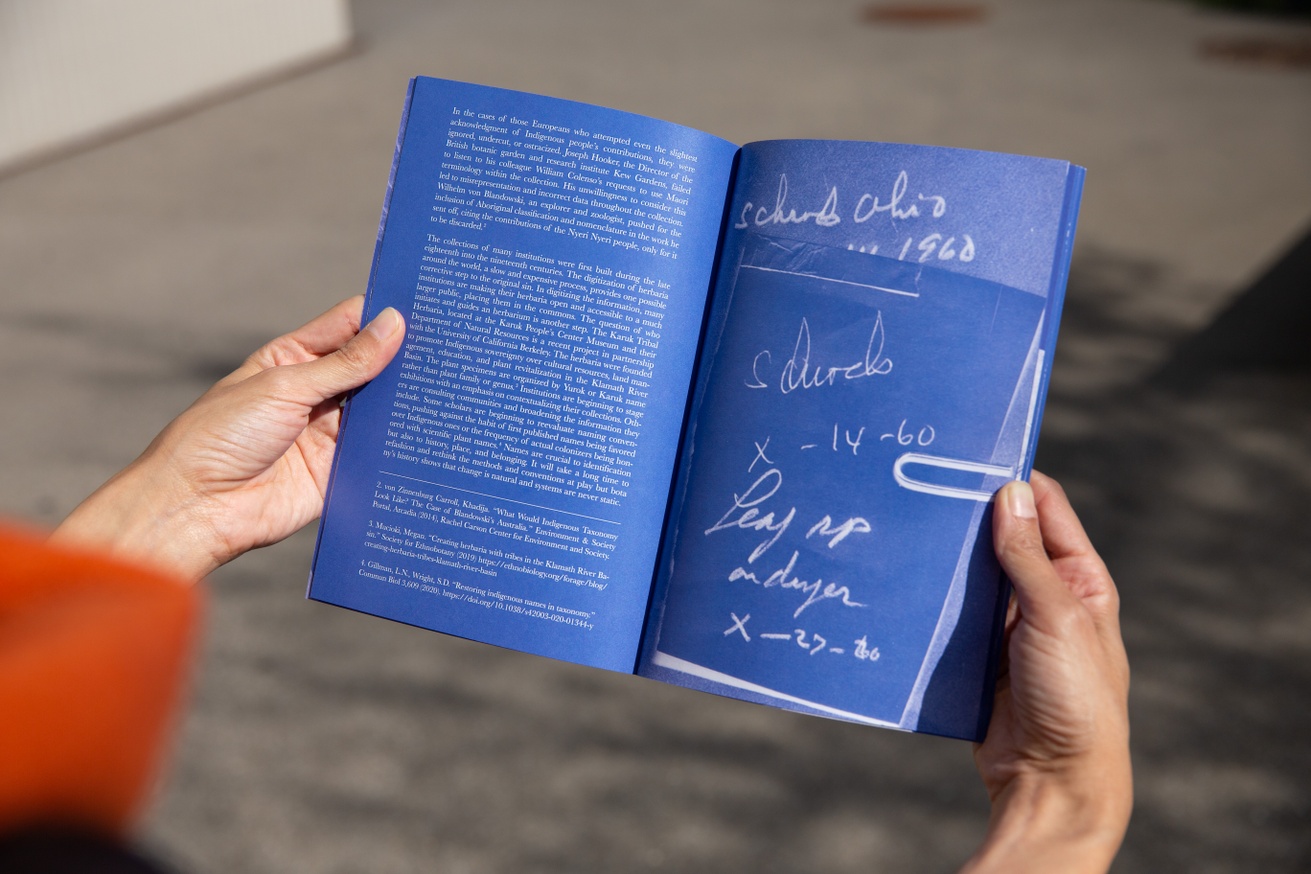 In the cases of those Europeans who attempted even the slightest
acknowledgment of Indigenous people's contributions, they were
ignored, undercut, or ostracized. Joseph Hooker, the Director of the
British botanic garden and research institute Kew Gardens, failed
to listen to his colleague William Colenso's requests to use Maori
terminology within the collection. His unwillingness to consider this
led to misrepresentation and incorrect data throughout the collection.
Wilhelm von Blandowski, an explorer and zoologist, pushed for the
inclusion of Aboriginal classification and nomenclature in the work he
sent off, citing the contributions of the Nyeri Nyeri people, only for it
to be discarded.²
The collections of many institutions were first built during the late
eighteenth into the nineteenth centuries. The digitization of herbaria
around the world, a slow and expensive process, provides one possible
corrective step to the original sin. In digitizing the information, many
institutions are making their herbaria open and accessible to a much
larger public, placing them in the commons. The question of who
initiates and guides an herbarium is another step. The Karuk Tribal
Herbaria, located at the Karuk People's Center Museum and their
Department of Natural Resources is a recent project in partnership
with the University of California Berkeley. The herbaria were founded
to promote Indigenous sovereignty over cultural resources, land man-
agement, education, and plant revitalization in the Klamath River
Basin. The plant specimens are organized by Yurok or Karuk name
rather than plant family or genus.³ Institutions are beginning to stage
exhibitions with an emphasis on contextualizing their collections. Oth-
ers are consulting communities and broadening the information they
include. Some scholars are beginning to reevaluate naming conven-
tions, pushing against the habit of first published names being favored
over Indigenous ones or the frequency of actual colonizers being hon-
ored with scientific plant names.⁴ Names are crucial to identification
but also to history, place, and belonging. It will take a long time to
refashion and rethink the methods and conventions at play but bota
ny's history shows that change is natural and systems are never static.
2. von Zinnenburg Carroll, Khadija. "What Would Indigenous Taxonomy
Look Like? The Case of Blandowski's Australia." Environment & Society
Portal, Arcadia (2014), Rachel Carson Center for Environment and Society.
3. Mucioki, Megan. "Creating herbaria with tribes in the Klamath River Ba-
sin." Society for Ethnobotany (2019) https://ethnobiology.org/forage/blog/
creating-herbaria-tribes-klamath-river-basin
4. Gillman, L.N., Wright, S.D. "Restoring indigenous names in taxonomy."
Commun Biol 3,609 (2020). https://doi.org/10.1038/s42003-020-01344-y
Ohio
1960
X - 14 - 60
Leaf
on dryer
X - 27 - 60